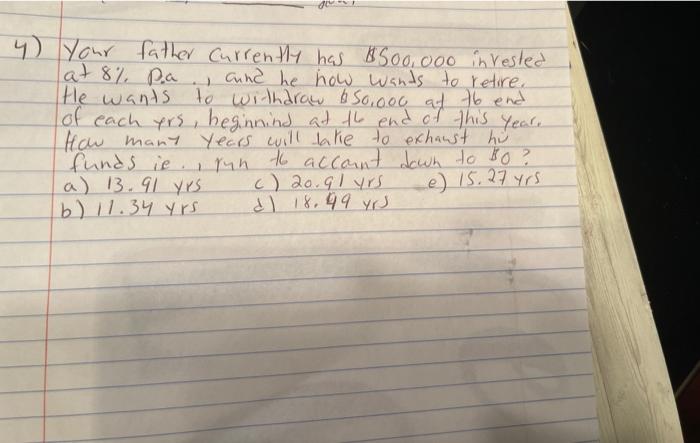 4) Your father currently has $500,000 invested
at 8% p.a., and he now wants to retire.
He wants to withdraw $50,000 at th end
of each yrs, beginnind at th end of this year.
How many years will take to exhaust his
funds ie., run th accant down to $0?
a) 13.91 yrs c) 20.91 yrs e) 15.27 yrs
b) 11.34 yrs d) 18.49 yrs